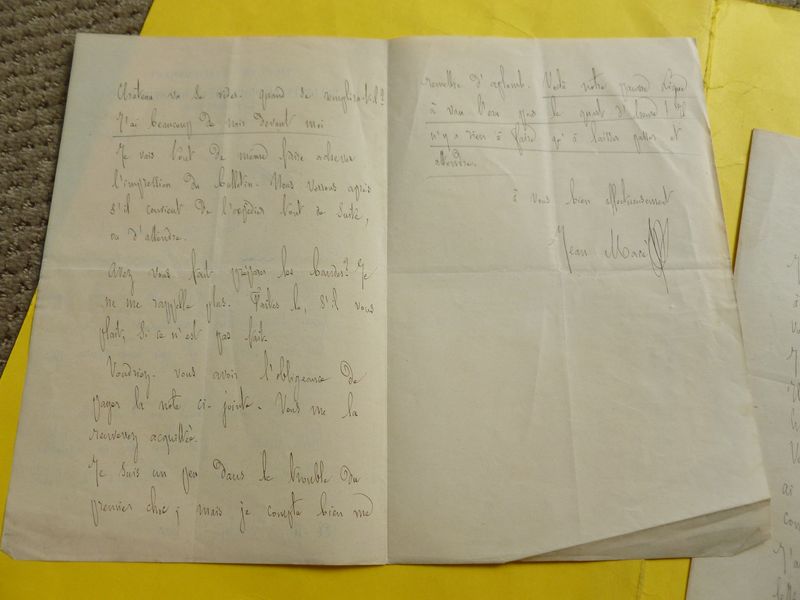 va se vider. quand se remplira-t-il?
J'ai beaucoup de mois devant moi
Je vais tout de même faire achever
l'impression du bulletin. Nous verrons après
s'il convient de l'expédier tout de suite,
ou d'attendre.
Avez vous fait préparer les bandes? Je
ne me rappelle plus. Faites le, s'il vous
plait, si ce n'est pas fait.
Voudriez-vous avoir l'obligeance de
payer la note ci-jointe. Vous me la
renverrez acquittée.
Je suis un peu dans le trouble du
premier choc; mais je compte bien me
remettre d'aplomb. Voilà notre pauvre
à vau l'eau pour le quart d'heure! Il
n'y a rien à faire qu'à laisser passer et
attendre.
à vous bien affectueusement
Jean Macé